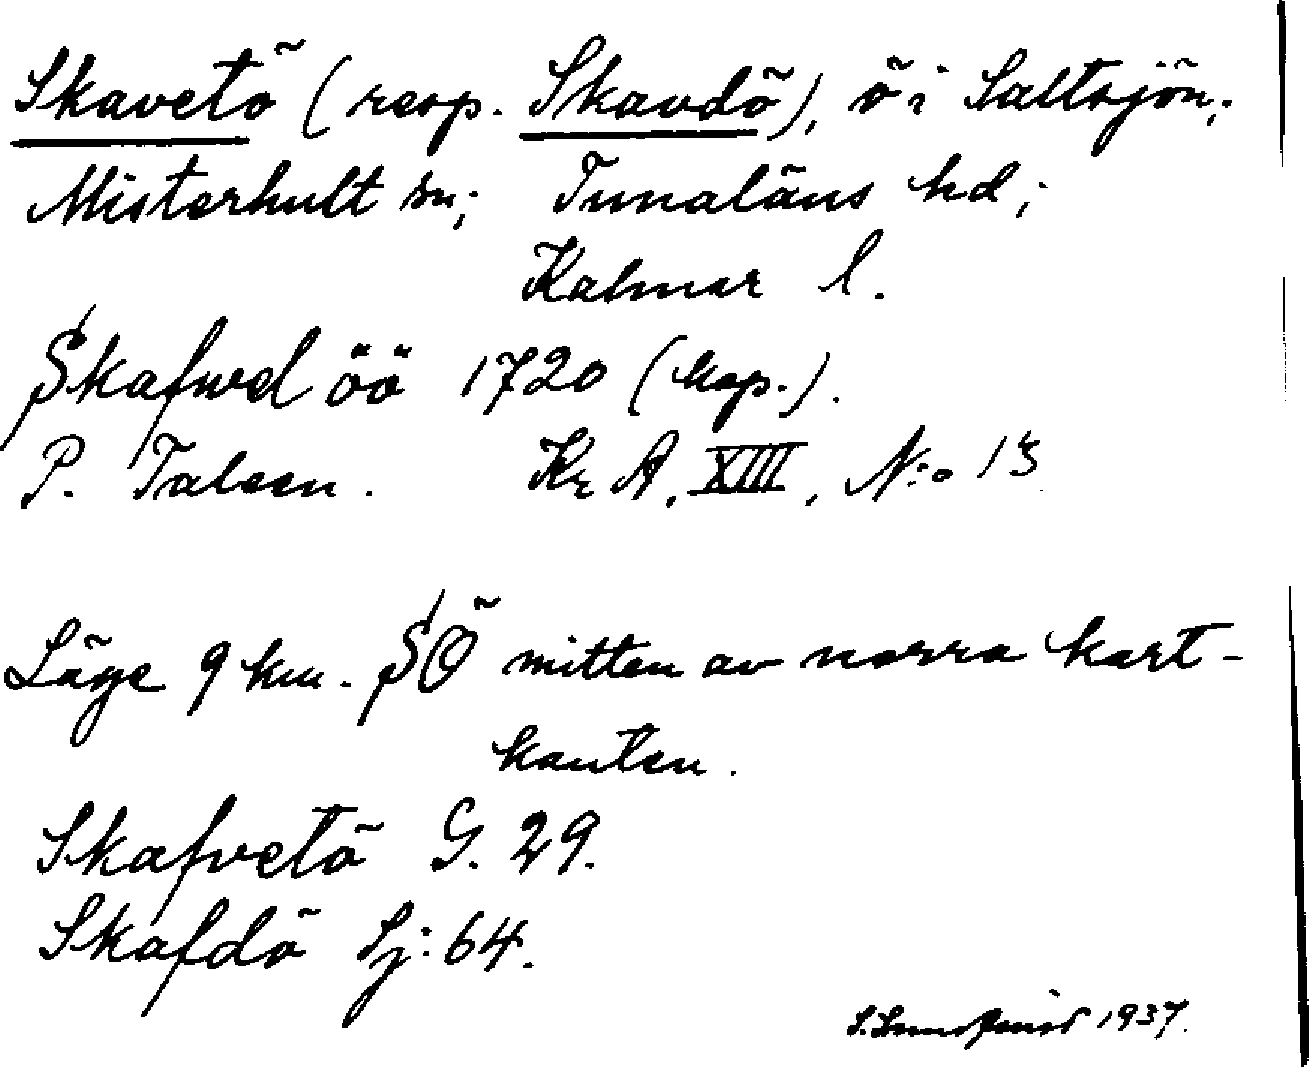 Skavetö (resp. Skavdö), ö i Saltsjön,
Misterhult sn; Tunaläns hd;
Kalmar l.
Skafwel öö 1720 (kop.).
P. Talsen. Kr A, XIII, N:o 13
Läge 9 km. SÖ mitten av norra kart-
kanten.
Skafvetö G. 29.
Skafdö Sj: 64.
1937.